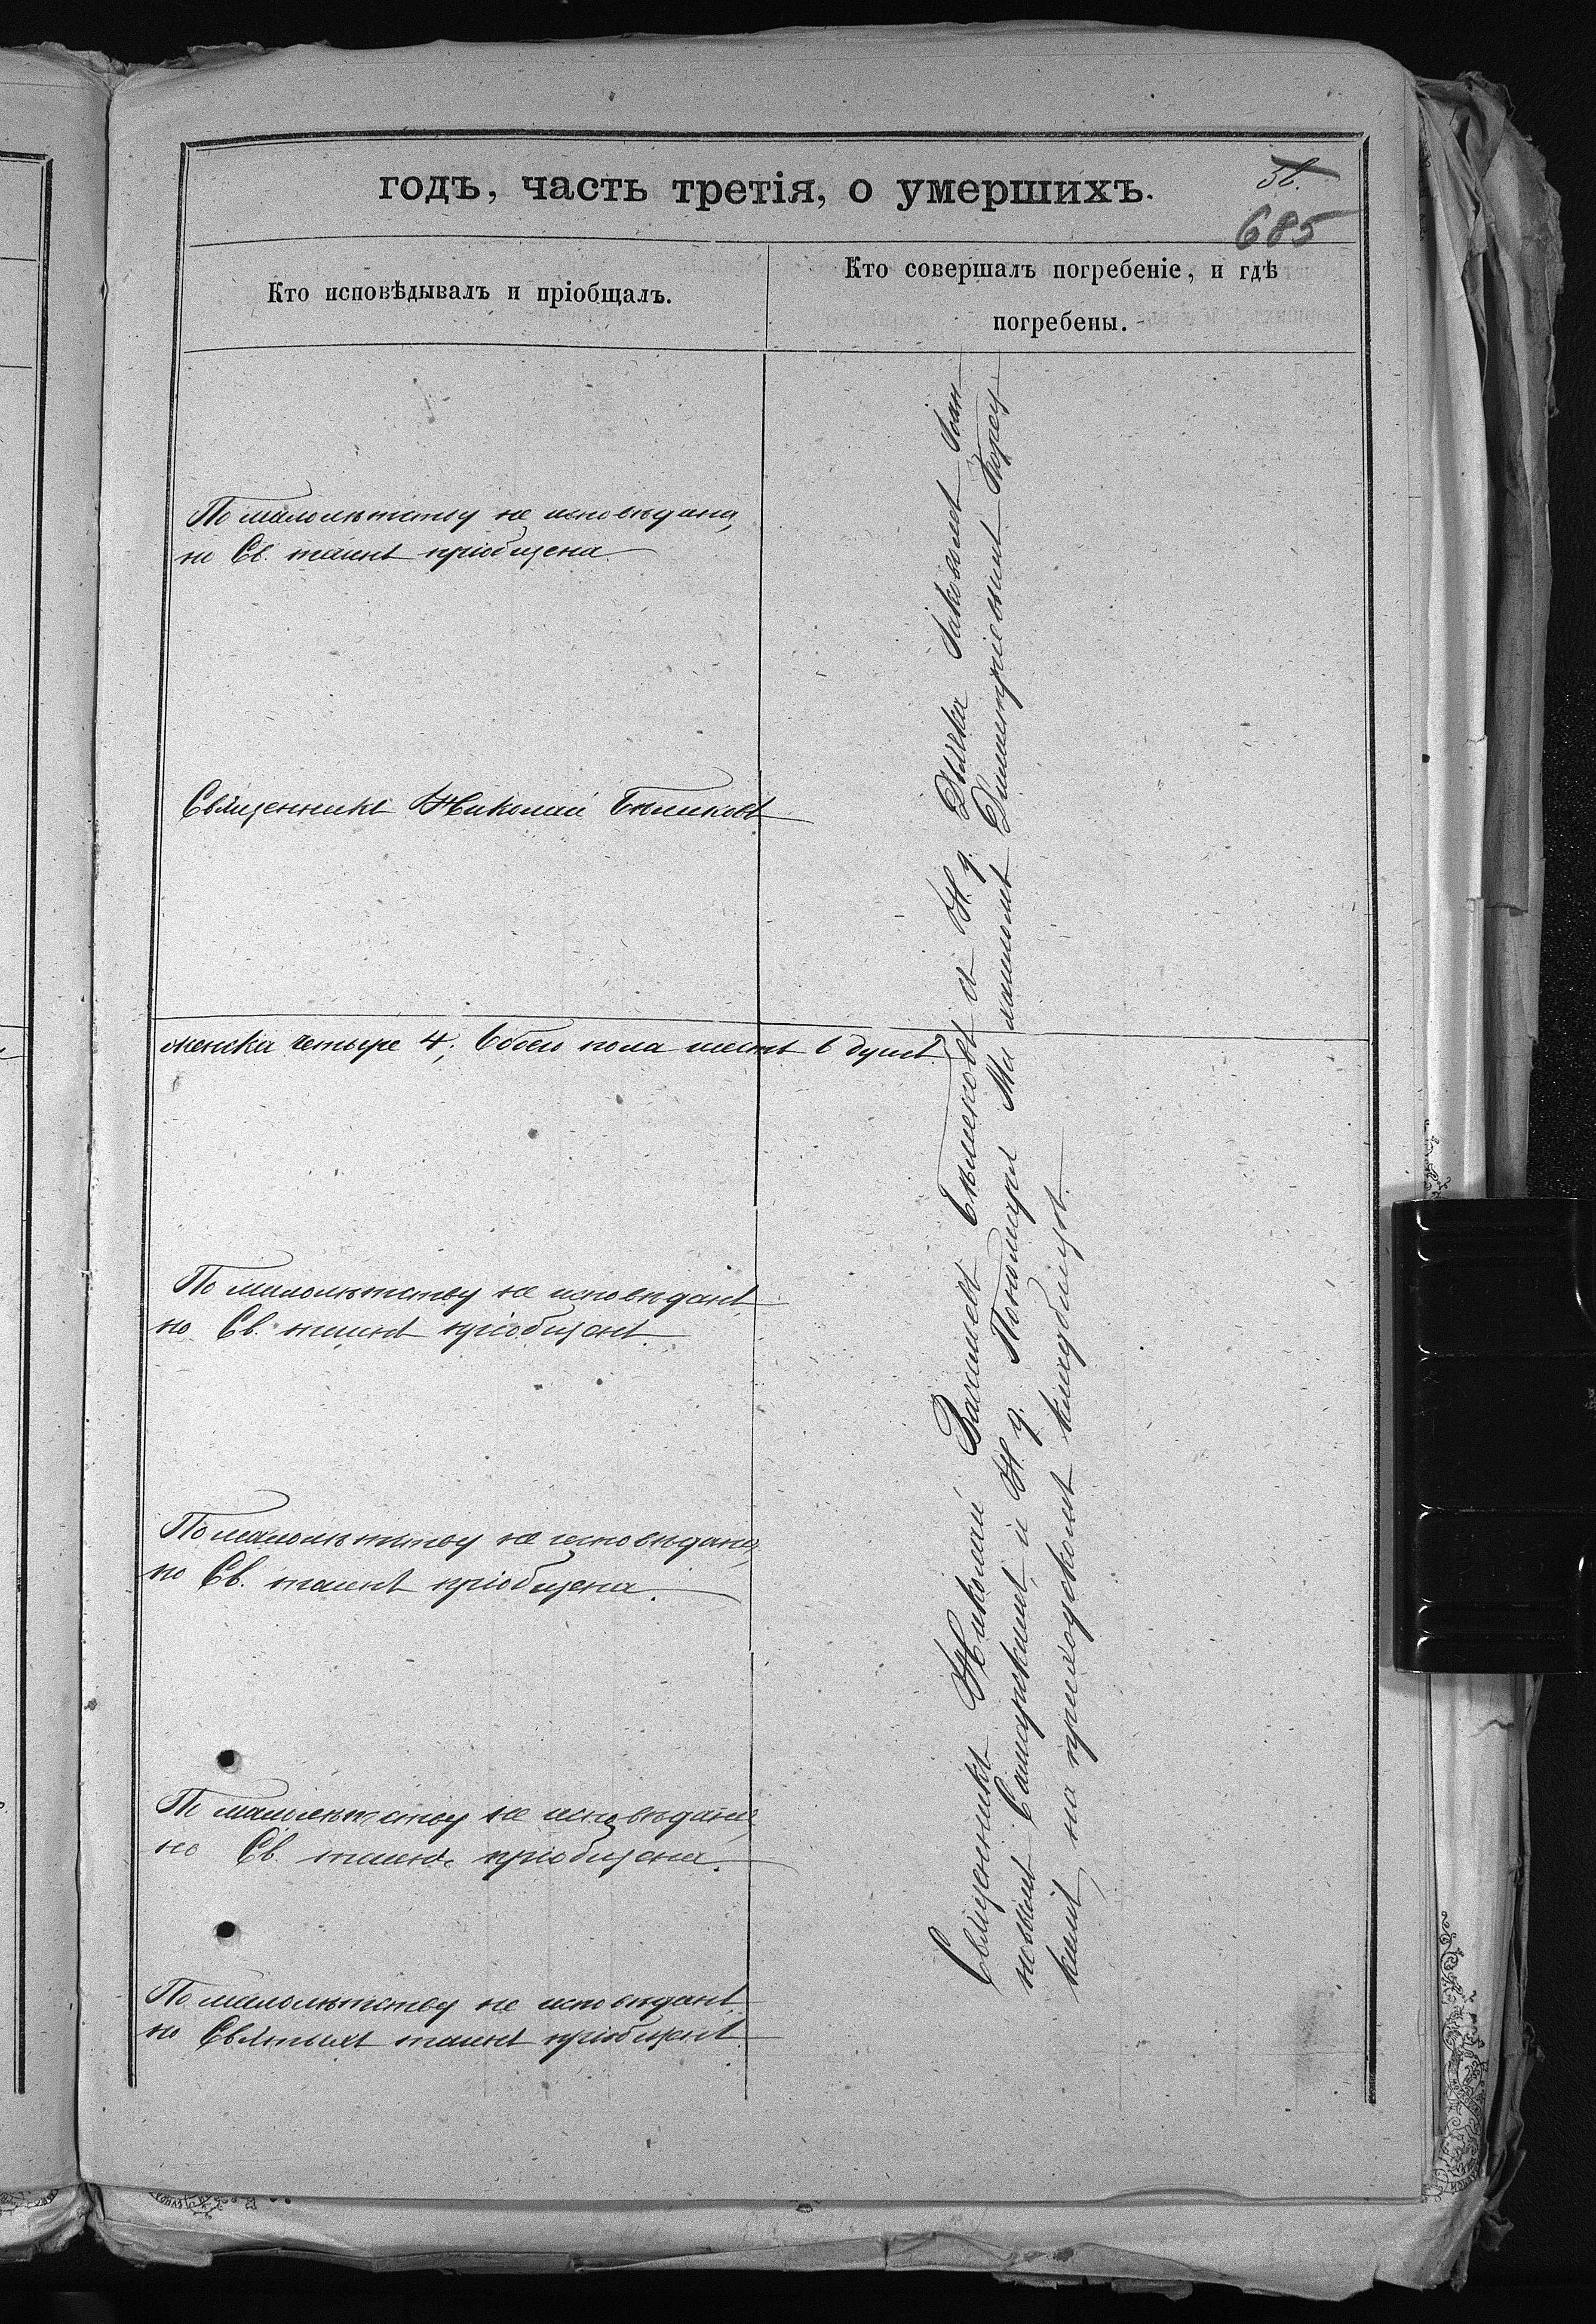 годъ, часть третія, о умершихъ.
36.
685
Кто исповѣдывалъ и пріобщалъ.
Кто совершалъ погребеніе, и гдѣ
погребены.
По малолѣтству не исповѣдана,
но Св. таинъ пріобщена
Священникъ Николай Бѣликовъ
женска четыре 4; Обоего пола шесть 6 душъ.
По малолѣтству не исповѣданъ
но Св. таинъ пріобщенъ.
По малолѣтству не исповѣдана,
но Св. таинъ пріобщена.
По малолѣтству не исповѣдана,
но Св. таинъ пріобщена.
По малолѣтству не исповѣданъ
но Святыхъ таинъ пріобщенъ
Священникъ Николай Бѣликовъ съ И. д. Дьячка Іаковомъ Іоан-
новымъ Самарскимъ и И. д. Пономаря Димитріевымъ
кимъ, на приходскомъ кладбищѣ.